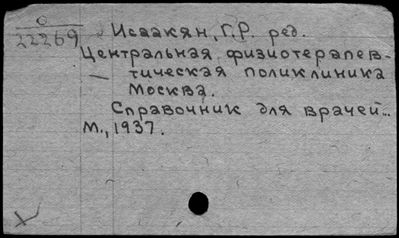 О
22269
Исаакян, Г.Р. ред.
Центральная физиотерапев-
тическая поликлиника
Москва.
Справочник для врачей...
М., 1937.